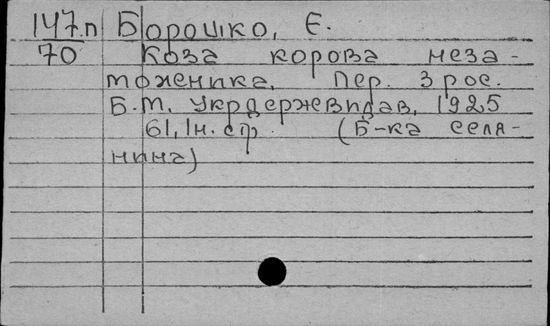 147.п Борошко, Є.
70 Коза корова неза-
можника. Пер. з рос.
Б.м. Укрдержевидав, 1925
61, 1н. ст. (Б-ка селя-
нина)